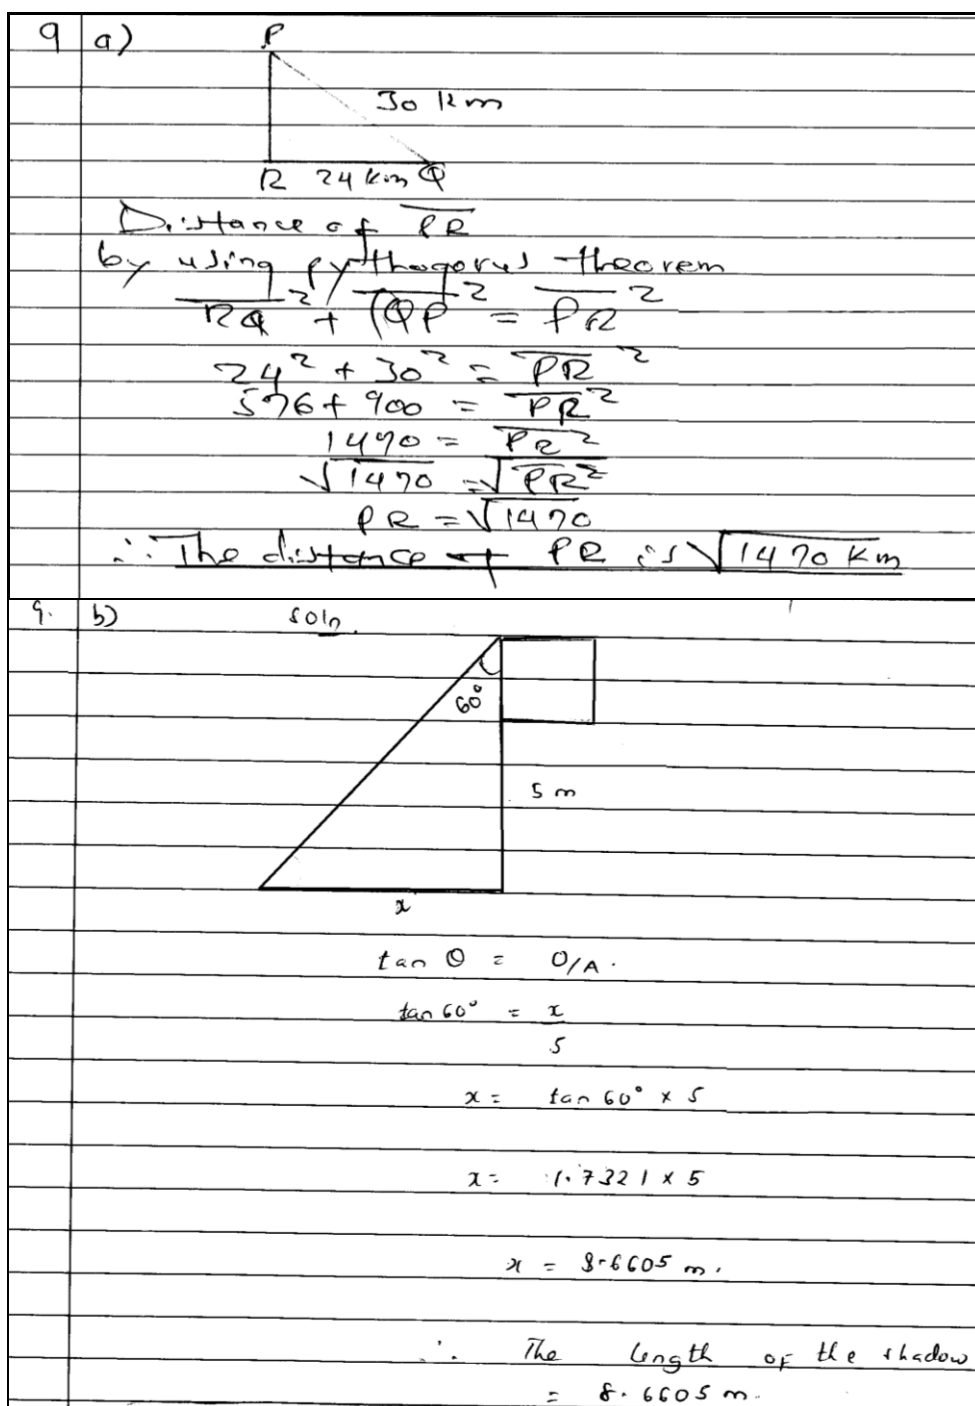 9 a)
P
30 km
R 24 km Q
Distance of PR
by using pythagorus theorem
RQ² + QP² = PR²
24² + 30² = PR²
576 + 900 = PR²
1470 = PR²
√1470 = √PR²
PR = √1470
∴ The distance of PR is √1470 km
9. b) soln
60°
5 m
x
tan θ = O/A.
tan 60° = x
5
x = tan 60° × 5
x = 1.7321 × 5
x = 8.6605 m.
∴ The length of the shadow
= 8.6605 m.